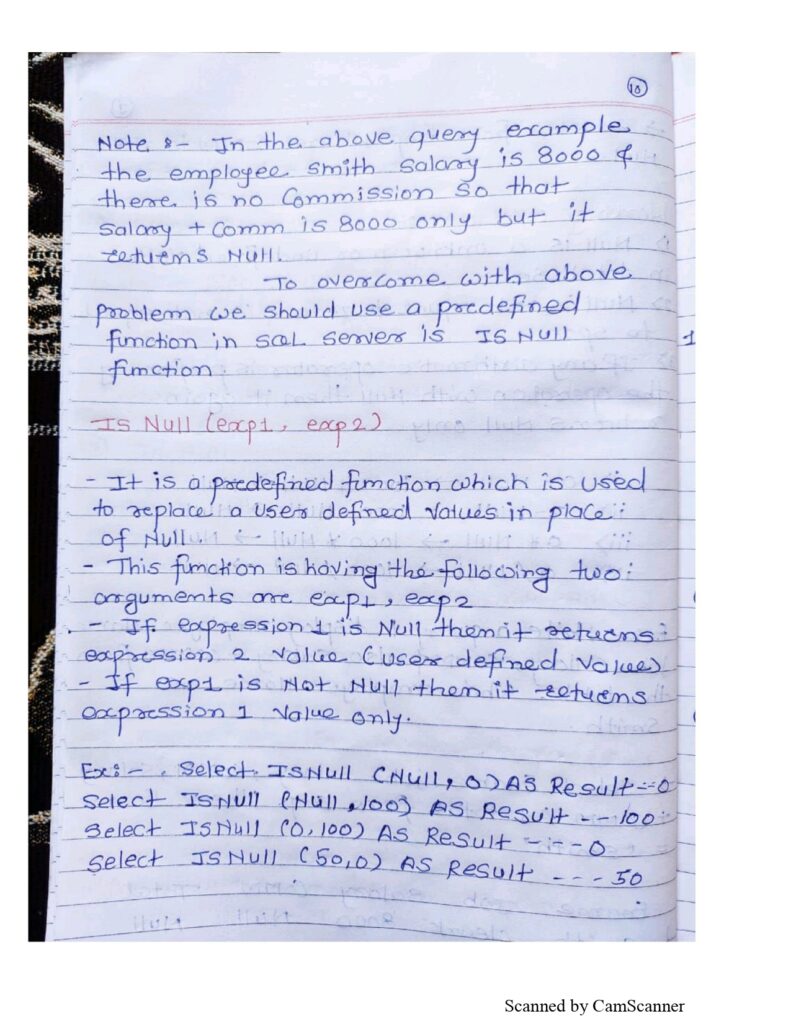 10
Note :- In the above query example
the employee smith salary is 8000 &
there is no Commission so that
salary + Comm is 8000 only but it
returns Null.
To overcome with above
problem we should use a predefined
function in SQL Server is IS Null
function
Is Null (exp1, exp2)
- It is a predefined function which is used
to replace a user defined values in place
of Null
- This function is having the following two
arguments are exp1, exp2
- If expression 1 is Null then it returns
expression 2 value (user defined value)
- If exp1 is Not Null then it returns
expression 1 value only.
Ex:- Select ISNull (Null, 0) AS Result--0
Select ISNull (Null, 100) AS Result -- 100
Select ISNull (0, 100) AS Result - - - 0
Select ISNull (50,0) AS Result - - - 50
Scanned by CamScanner